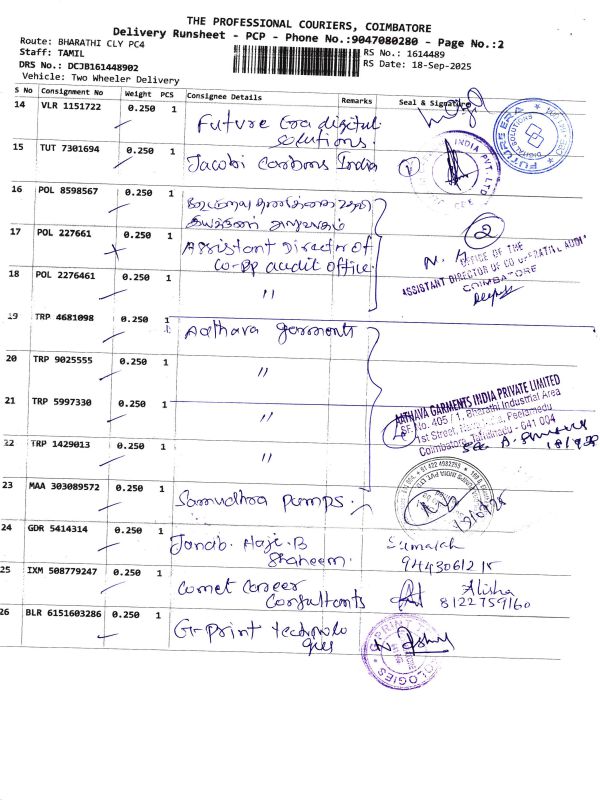 THE PROFESSIONAL COURIERS, COIMBATORE
Delivery Runsheet - PCP - Phone No.:9047080280 - Page No.:2
Route: BHARATHI CLY PC4
RS No.: 1614489
Staff: TAMIL
RS Date: 18-Sep-2025
DRS No.: DCJB161448902
Vehicle: Two Wheeler Delivery
S No Consignment No Weight PCS Consignee Details Remarks Seal & Signature
14 VLR 1151722 0.250 1 Future Era digital
solutions.
FUTURE ERA
DIGITAL SOLUTIONS
15 TUT 7301694 0.250 1 Jacobi Carbons India
INDIA PVT. LTD
16 POL 8598567 0.250 1
17 POL 227661 0.250 1 Assistant Director of
Co-op audit office.
2
OFFICE OF THE
ASSISTANT DIRECTOR OF CO-OPERATIVE AUDIT
COIMBATORE
18 POL 2276461 0.250 1 "
19 TRP 4681098 0.250 1 Aathava garments
20 TRP 9025555 0.250 1 "
21 TRP 5997330 0.250 1 "
AATHAVA GARMENTS INDIA PRIVATE LIMITED
SF.No. 405 / 1, Bharathi Industrial Area
1st Street, Peelamedu
Coimbatore, Tamilnadu - 641 004
4
22 TRP 1429013 0.250 1 "
23 MAA 303089572 0.250 1 Samudhra Pumps.
24 GDR 5414314 0.250 1 Janab. Haji. B
Shaheem.
Sumaiah
9443061215
25 IXM 508779247 0.250 1 Comet Career
Consultants
Alisha
8122759160
26 BLR 6151603286 0.250 1 G-print technolo
gies